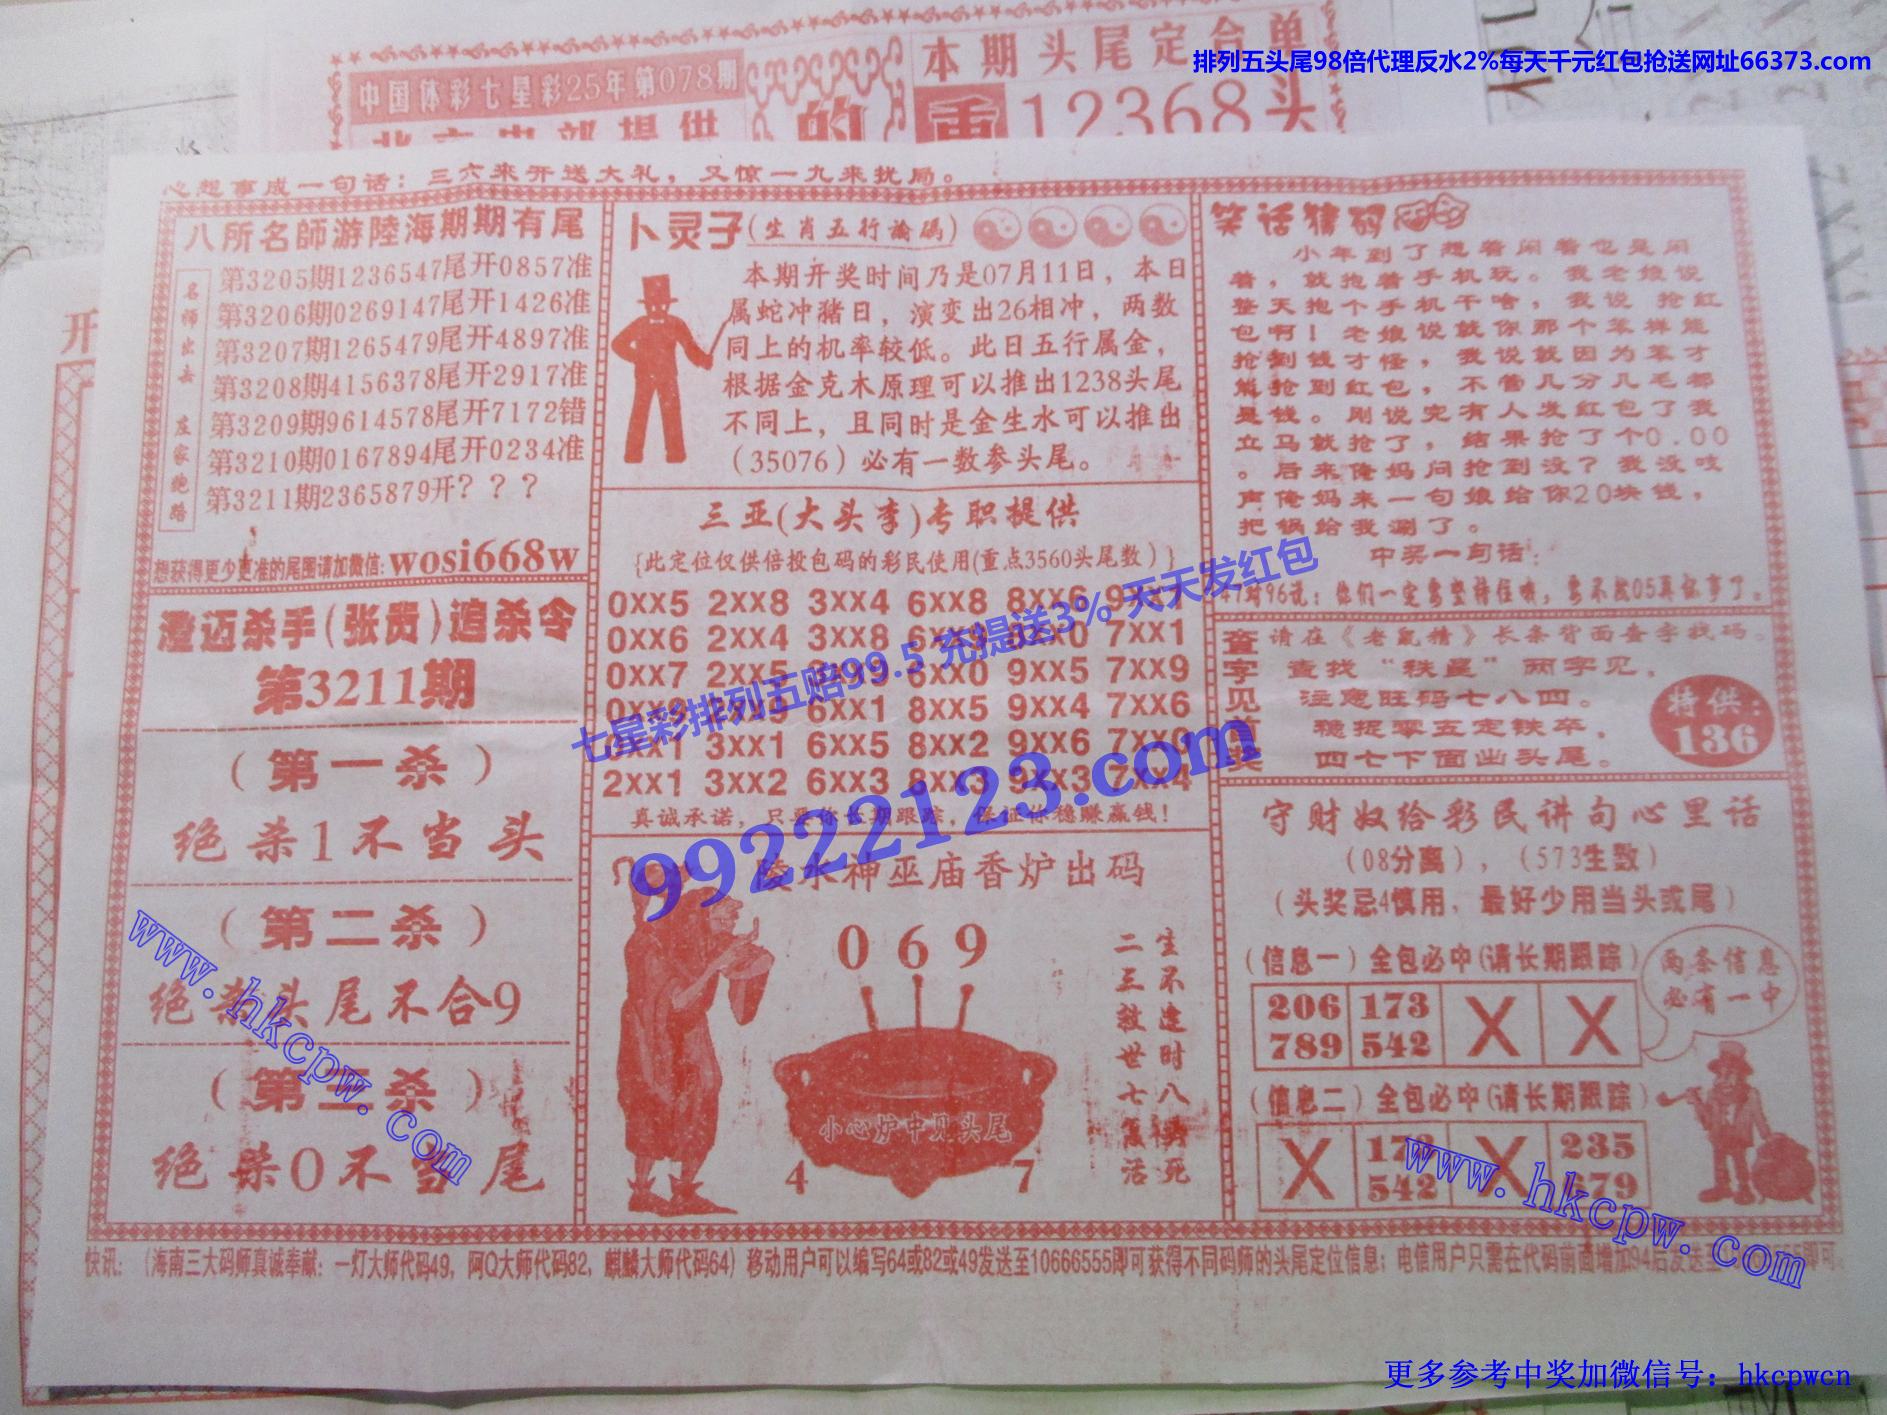 排列五头尾98倍代理反水2%每天千元红包抢送网址66373.com
中国体彩七星彩25年第078期
的
本期头尾定合单
12368头
心想事成一句话：三六来开送大礼，又惊一九来扰局。
八所名師游陸海期期有尾
名师出去 庄家绝路
第3205期1236547尾开0857准
第3206期0269147尾开1426准
第3207期1265479尾开4897准
第3208期4156378尾开2917准
第3209期9614578尾开7172错
第3210期0167894尾开0234准
第3211期2365879开？？？
想获得更少更准的尾围请加微信:wosi668w
澄迈杀手(张贵)追杀令
第3211期
（第一杀）
绝杀1不当头
（第二杀）
绝杀头尾不合9
（第三杀）
绝杀0不当尾
卜灵子(生肖五行論碼)
本期开奖时间乃是07月11日，本日
属蛇冲猪日，演变出26相冲，两数
同上的机率较低。此日五行属金，
根据金克木原理可以推出1238头尾
不同上，且同时是金生水可以推出
（35076）必有一数参头尾。
三亚(大头李)专职提供
{此定位仅供倍投包码的彩民使用(重点3560头尾数)}
0XX5 2XX8 3XX4 6XX8 8XX6
0XX6 2XX4 3XX8 7XX1
0XX7 2XX5 6XX0 9XX5 7XX9
6XX1 8XX5 9XX4 7XX6
3XX1 6XX5 8XX2 9XX6
2XX1 3XX2 6XX3 8XX3 9XX3 7XX4
真诚承诺，只要你长期跟踪，保证你稳赚赢钱！
七星彩排列五赔99.5 充提送3% 天天发红包
99222123.com
陵水神巫庙香炉出码
0 6 9
小心炉中见头尾
4 7
生不逢时八 死
二三救世七 活
笑话猜码
小年到了想着闲着也是闲
着，就抱着手机玩。我老娘说
整天抱个手机干啥，我说 抢红
包啊！老娘说就你那个笨样能
抢到钱才怪，我说就因为笨才
能抢到红包，不管几分几毛都
是钱。刚说完有人发红包了我
立马就抢了，结果抢了个0.00
。后来俺妈问抢到没？我没吱
声俺妈来一句娘给你20块钱，
把锅给我涮了。
中奖一句话：
47对96说：他们一定要坚持住哦，要不然05真坏事了。
查字见首奖
请在《老鼠精》长条背面查字找码。
查找“秩星”两字见，
注意旺码七八四。
稳捉零五定铁卒，
四七下面出头尾。
特供：
136
守财奴给彩民讲句心里话
（08分离），（573生数）
（头奖忌4慎用，最好少用当头或尾）
（信息一）全包必中(请长期跟踪)
206 173 X X
789 542
两条信息
必有一中
（信息二）全包必中(请长期跟踪)
X X 235
542 679
快讯：（海南三大码师真诚奉献：一灯大师代码49，阿Q大师代码82，麒麟大师代码64）移动用户可以编写64或82或49发送至10666555即可获得不同码师的头尾定位信息；电信用户只需在代码前面增加94后发送至
www.hkcpw.com
www.hkcpw.com
更多参考中奖加微信号：hkcpwcn